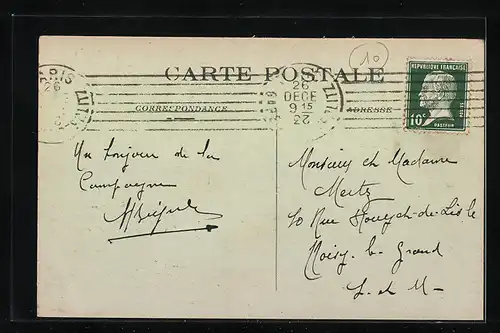 10
PARIS
26
CARTE POSTALE
CORRESPONDANCE
ADRESSE
26
DECE
9 15
23
REPUBLIQUE FRANÇAISE
POSTES
10c
PASTEUR
Un bonjour de la
Campagne
Monsieur et Madame
Mertz
10 Rue de Lisle
Noisy-le-Grand
S. et M-